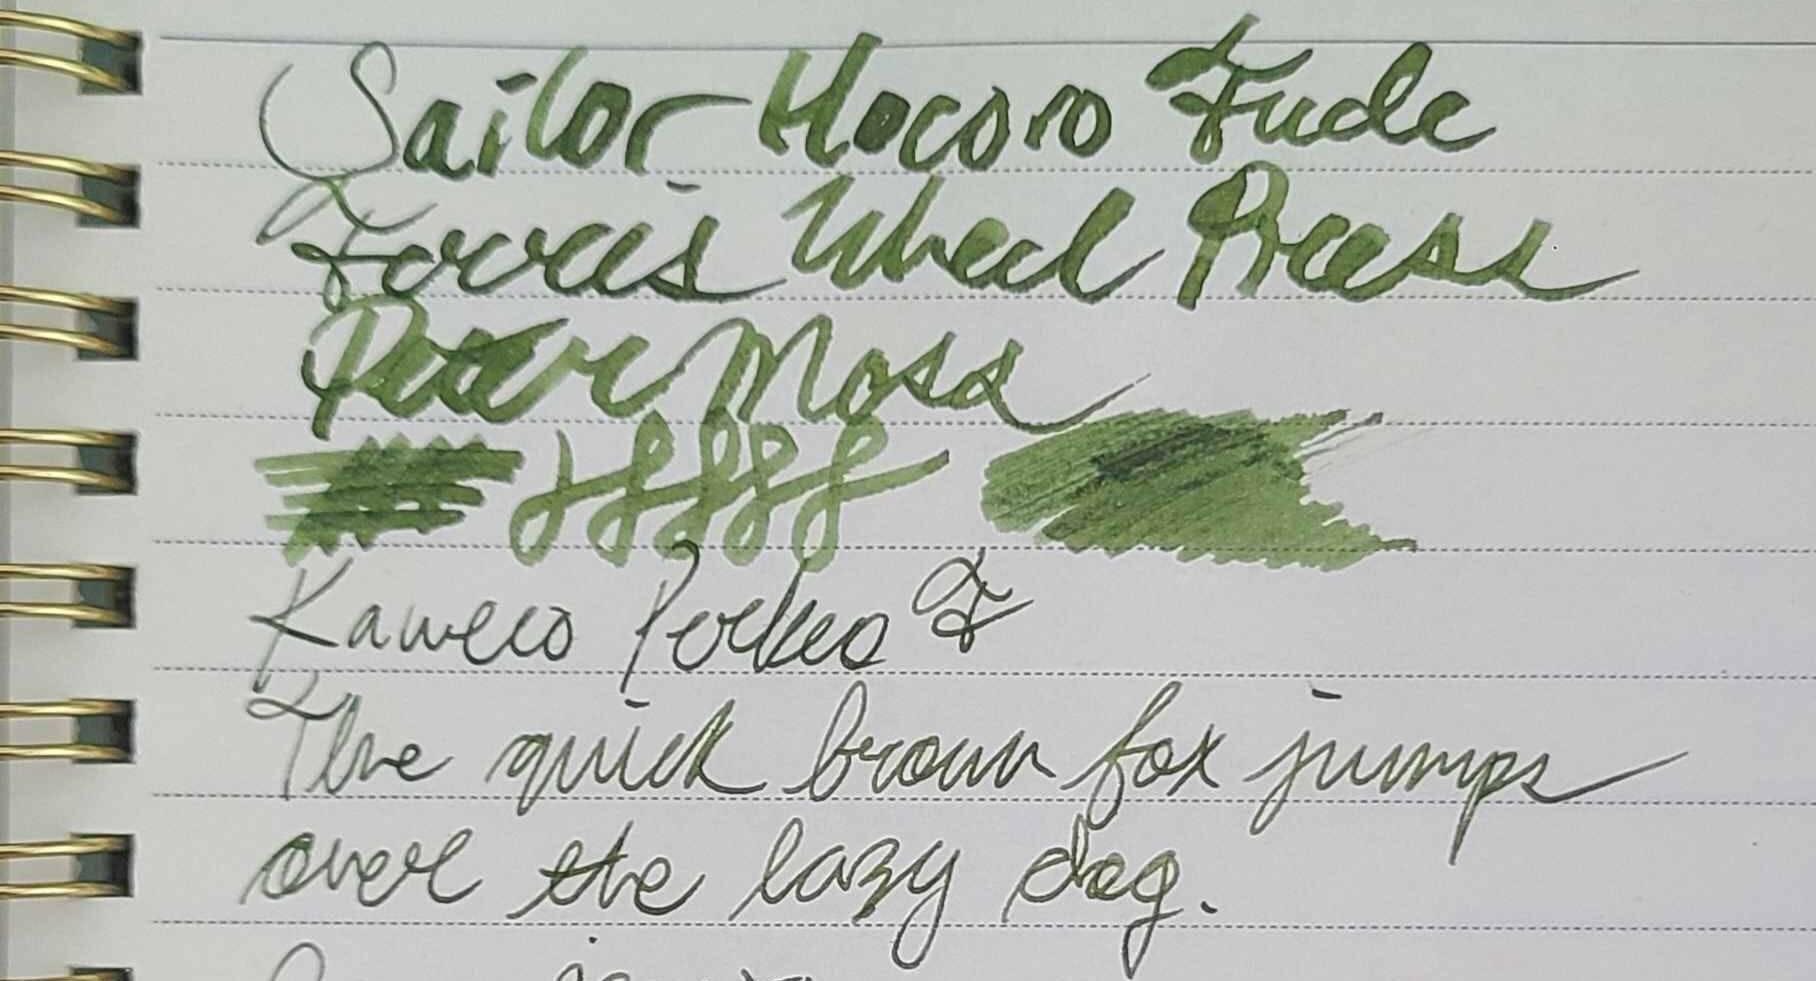 Sailor Hocoro Fude
Ferris Wheel Press
Peter Moss
Kaweco Perkeo F
The quick brown fox jumps
over the lazy dog.